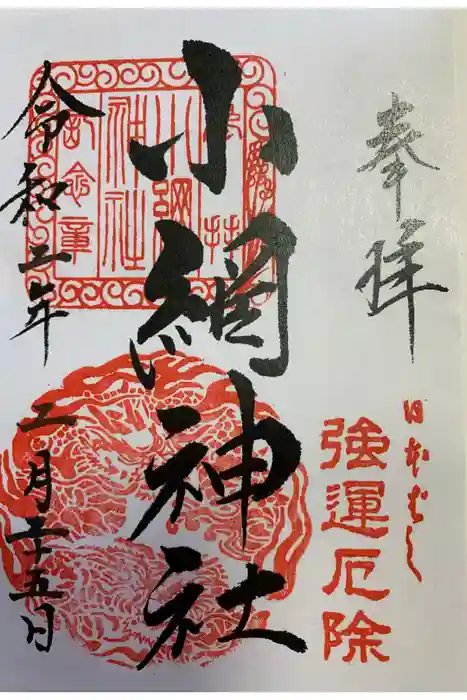 奉拝
日本ばし
強運厄除
小網神社
小網
神社
記念章
令和二年
二月二十五日